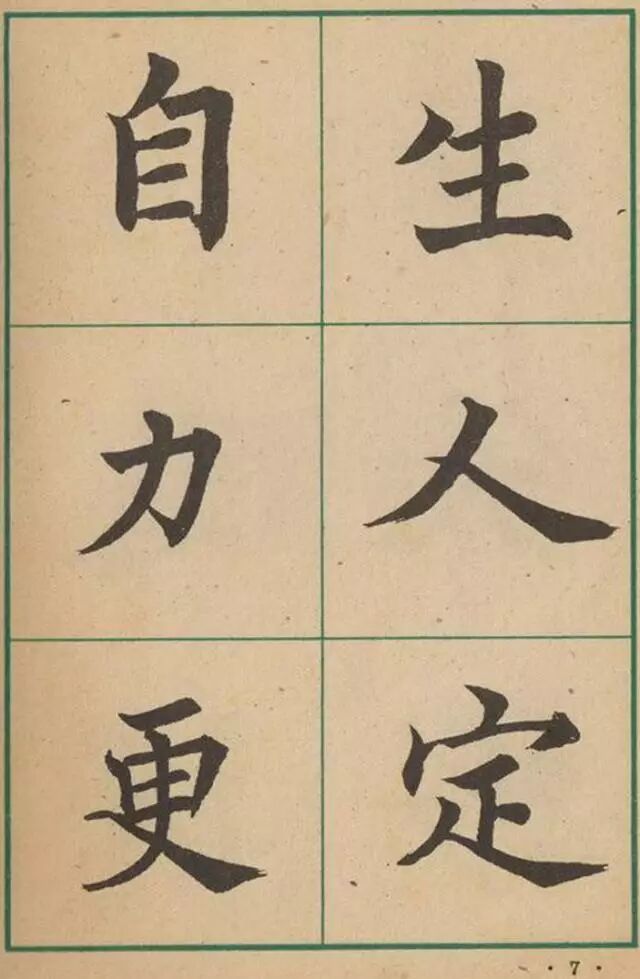 生人定
自力更
·7·